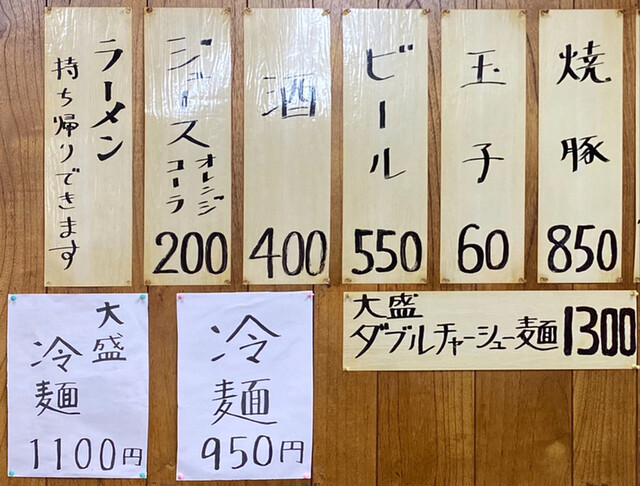 焼豚
850
玉子
60
ビール
550
酒
400
ジュース
オレンジ
コーラ
200
ラーメン
持ち帰りできます
大盛
ダブルチャーシュー麺 1300
冷麺
950円
大盛
冷麺
1100円